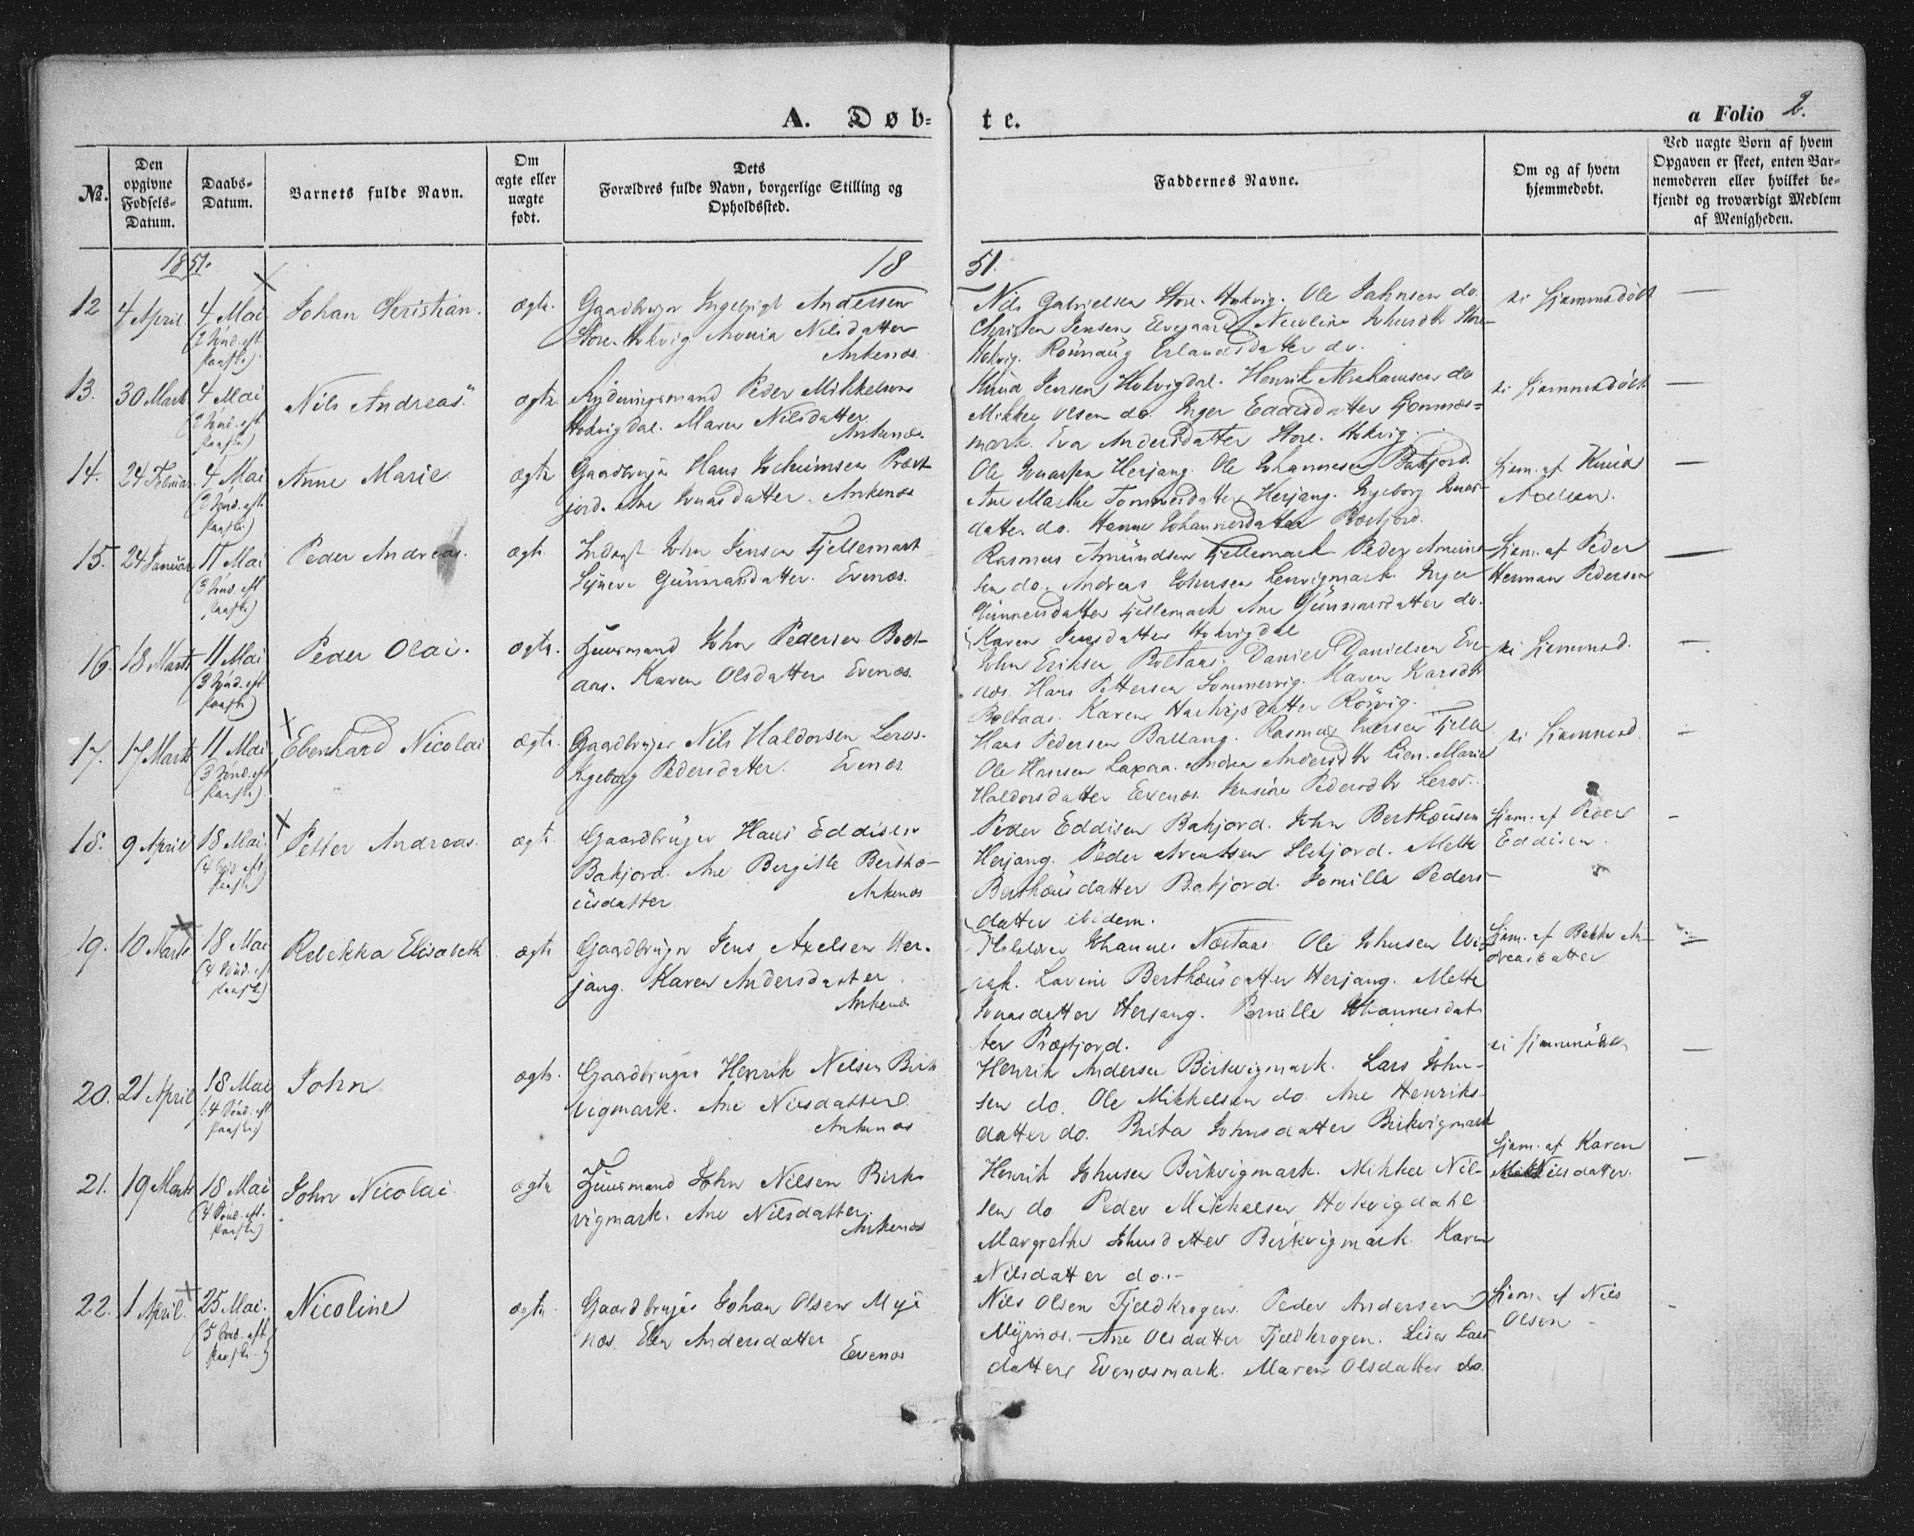 A. Døb-
te.
a Folio 2.
№.
Den opgivne Fødsels-Datum.
Daabs-Datum.
Barnets fulde Navn.
Om ægte eller uægte født.
Dets Forældres fulde Navn, borgerlige Stilling og Opholdssted.
Faddernes Navne.
Om og af hvem hjemmedøbt.
Ved uægte Børn af hvem Opgaven er skeet, enten Barnemoderen eller hvilket bekjendt og troværdigt Medlem af Menigheden.
1851.
18
51.
12 4 April 4 Mai Johan Christian. ægte.
(2 Sønd. eft. Paaske)
Gaardbruger Ingebrigt Andersen
Store-Hokvig Nilsdatter
Ankenæs.
Nils Gabrielsen Store-Hokvig. Ole Jahnsen do.
Christen Jensen Elvegaard Nicoline Johnsdtr Store-
Hokvig. Rönnaug Erlandsdatter do.
ei hjemmedøbt
13. 30 Marts 4 Mai Nils Andreas ægte
(2 Sønd. eft. Paaske)
Rydningsmand Peder Mikkelsen
Hokvigdal. Maren Nilsdatter
Ankenæs.
Knud Jensen Hokvigdal. Henrik Abrahamsen do
Mikkel Olsen do. Inger Eddisdatter
mark. Eva Andersdatter Store-Hokvig.
ei hjemmedøbt
14. 24 Februar 4 Mai Anne Marie ægte
(2 Sønd. eft. Paaske)
Gaardbruger Hans Jochumsen Præst-
jord. Ane Ivarsdatter. Ankenæs
Ole Ivarsen Herjang. Ole Johannesen
Ane Marthe Tommesdatter Herjang. Ingeborg Ivars-
datter do. Hanne Johannesdatter
hjem. af Knud
15. 24 Januar 11 Mai Peder Andreas. ægte.
(3 Sønd. eft. Paaske)
Inderst John Jensen Fjellemark
Synneve Gunnarsdatter. Evenæs.
Rasmus Amundsen Fjellemark Peder Amund-
sen do. Andreas Johnsen Lenvigmark. Inger
Gunnersdatter Fjellemark Ane Gunnarsdatter do.
Karen Jensdatter Hokvigdal
hjem. af Peder
Herman Pedersen
16. 18 Marts 11 Mai Peder Olai. ægte.
(3 Sønd. eft. Paaske)
Huusmand John Pedersen Bolt-
aas. Karen Olsdatter Evenæs.
John Eriksen Boltaas. Daniel Danielsen Eve-
næs. Hans Pettersen Sommervig. Maren
Boltaas. Karen Hartvigsdatter Rörvig.
ei hjemmed.
17. 17 Marts 11 Mai Ebenhard Nicolai ægte
(3 Sønd. eft. Paaske)
Gaardbruger Nils Haldorsen Leros.
Ingeborg Pedersdatter. Evenæs.
Hans Pedersen Ballang. Rasmus
Ole Hansen Laxaa. Andrea Andersdtr Lien. Marie
Haldorsdatter Evenæs. Jensine Pedersdtr Leros.
ei hjemmed.
18. 9 April 18 Mai Petter Andreas. ægte
(4 Sønd. eft. Paaske)
Gaardbruger Hans Eddisen
Bakjord. Ane Bergitte Bertho-
üsdatter. Ankenæs
Peder Eddisen Bakjord. John Berthæusen
Herjang. Peder Arentsen Mette
Berthæusdatter Bakjord. Peders-
datter ibidem.
hjem. af Peder
Eddisen.
19. 10 Marts 18 Mai Rebekka Elisabeth ægte
(4 Sønd. eft. Paaske)
Gaardbruger Jens Axelsen Her-
jang. Karen Andersdatter
Ankenæs
Johannes Næstaas. Ole Johnsen
Lavine Berthæusdatter Herjang. Mette
Ivarsdatter Herjang. Pernille Johannesdat-
ter Præstjord.
hjem. af An-
dreasdatter
20. 21 April 18 Mai John ægte.
(4 Sønd. eft. Paaske)
Gaardbruger Henrik Nilsen Birk-
vigmark. Ane Nilsdatter
Ankenæs
Henrik Andersen Birkvigmark. Lars John-
sen do. Ole Mikkelsen do. Ane Henriks-
datter do. Brita Johnsdatter Birkvigmark
ei hjemmedøbt
21. 19 Marts 18 Mai John Nicolai ægte
(4 Sønd. eft. Paaske)
Huusmand John Nilsen Birk-
vigmark. Ane Nilsdatter.
Ankenæs
Henrik Johnsen Birkvigmark. Mikkel Nil-
sen do Peder Mikkelsen Hokvigdahl
Margrethe Johnsdatter Birkvigmark. Karen
Nilsdatter do.
hjem. af Karen
Nilsdatter.
22. 1 April. 25 Mai. Nicoline ægte
(5 Sønd. eft. Paaske.)
Gaardbruger Johan Olsen Myr-
næs. Elen Andersdatter
Evenæs
Nils Olsen Fjeldkrogen. Peder Andersen
Myrnæs. Ane Olsdatter Fjeldkrogen. Lisa Lars-
datter Evenæsmark. Maren Olsdatter do.
hjem. af Nils
Olsen